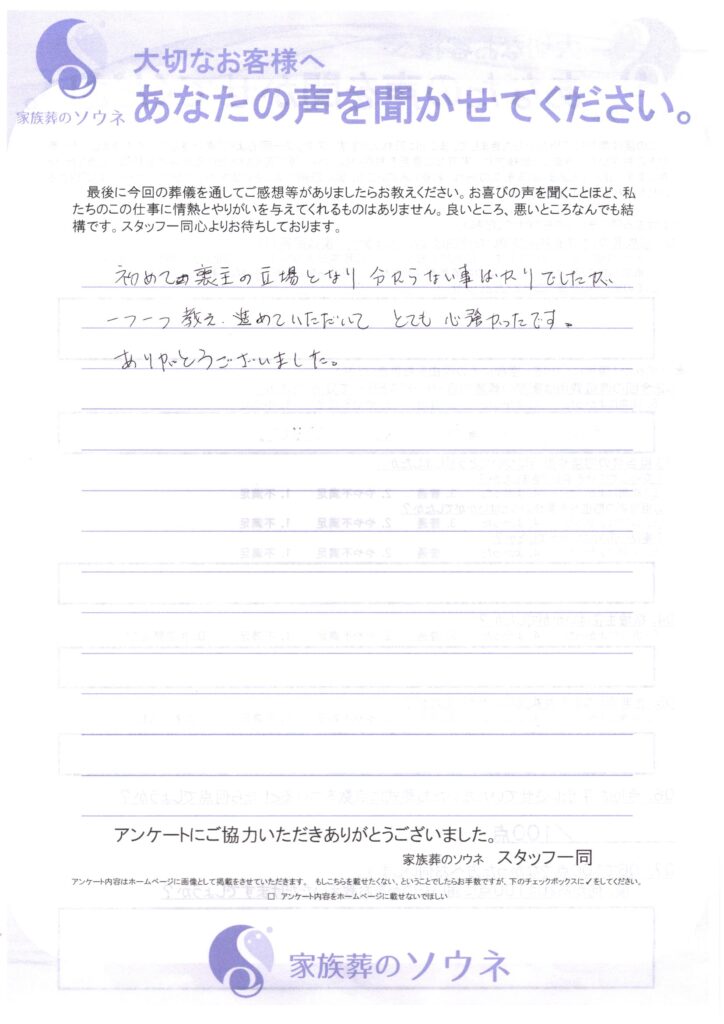 大切なお客様へ
家族葬のソウネ
あなたの声を聞かせてください。
最後に今回の葬儀を通してご感想等がありましたらお教えください。お喜びの声を聞くことほど、私
たちのこの仕事に情熱とやりがいを与えてくれるものはありません。良いところ、悪いところなんでも結
構です。スタッフ一同心よりお待ちしております。
初めての喪主の立場となり 分からない事ばかりでしたが、
一つ一つ教え、進めていただいて とても 心強かったです。
ありがとうございました。
アンケートにご協力いただきありがとうございました。
家族葬のソウネ スタッフ一同
アンケート内容はホームページに画像として掲載をさせていただきます。 もしこちらを載せたくない、ということでしたらお手数ですが、下のチェックボックスに✓をしてください。
□ アンケート内容をホームページに載せないでほしい
家族葬のソウネ